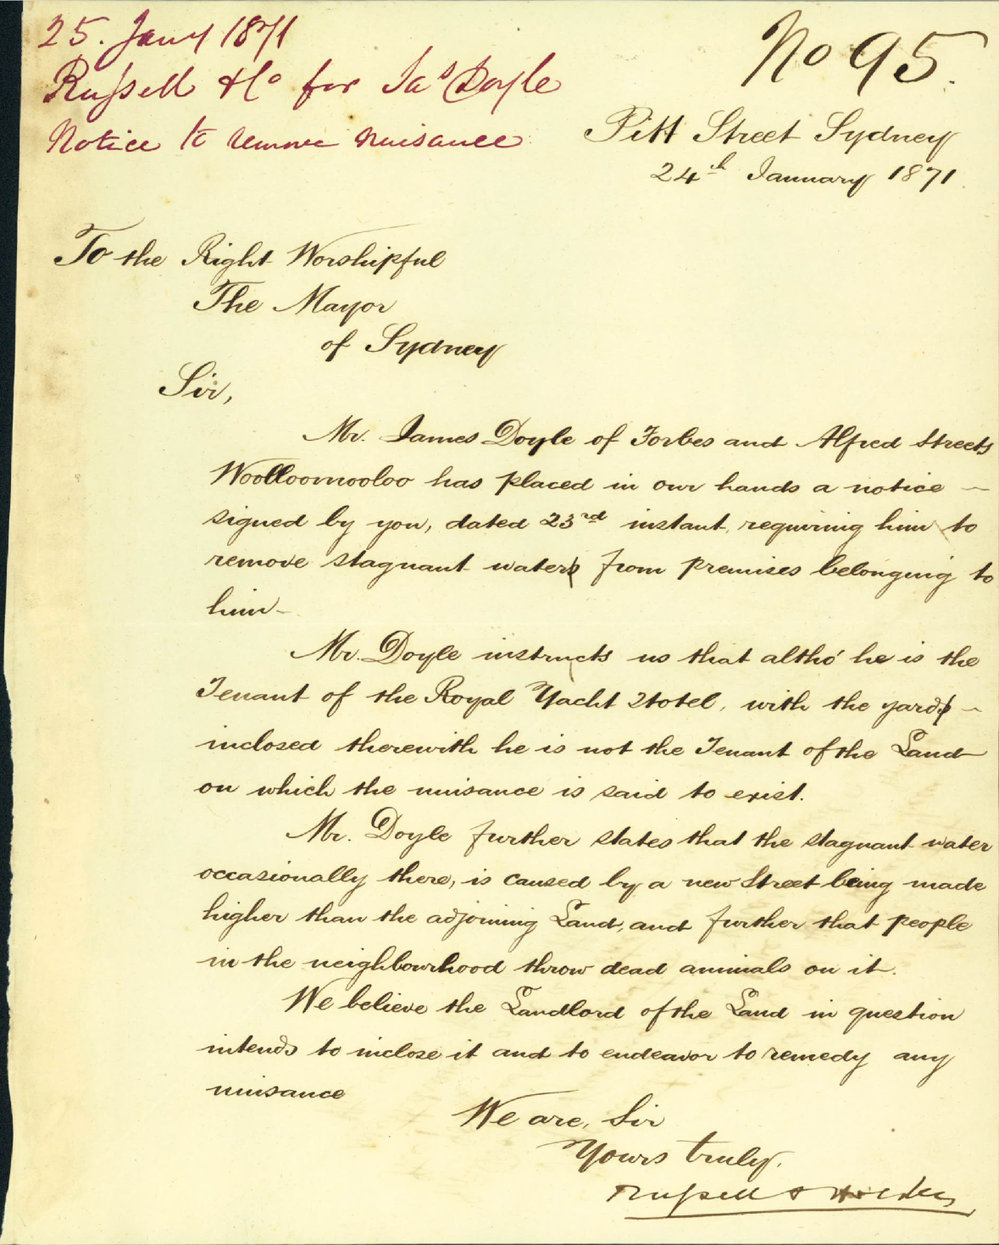 25. Jany 1871
Russell & Ho for Jas Doyle
Notice to remove nuisance
No 95.
Pitt Street Sydney
24th January 1871.
To the Right Worshipful
The Mayor
of Sydney
Sir,
Mr. James Doyle of Forbes and Alfred Streets
Woolloomooloo has placed in our hands a notice —
signed by you, dated 23rd instant, requiring him to
remove stagnant water from premises belonging to
him —
Mr. Doyle instructs us that altho' he is the
Tenant of the Royal Yacht Hotel, with the yard —
inclosed therewith he is not the Tenant of the Land
on which the nuisance is said to exist.
Mr. Doyle further states that the stagnant water
occasionally there, is caused by a new Street being made
higher than the adjoining Land, and further that people
in the neighbourhood throw dead animals on it.
We believe the Landlord of the Land in question
intends to inclose it and to endeavor to remedy any
nuisance
We are, Sir
Yours truly,
Russell & Holden